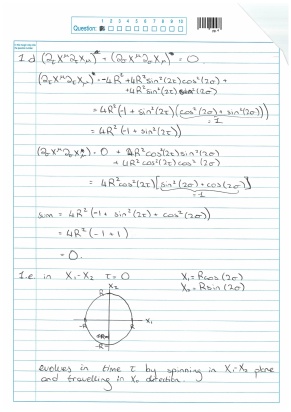 Question: 1 2 3 4 5 6 7 8 9 10
1.d (∂τX^μ∂τXμ) + (∂σX^μ∂σXμ) = 0.
(∂τX^μ∂τXμ) = -4R² + 4R²sin²(2τ)cos²(2σ) +
+4R²sin²(2τ)sin²(2σ)
= 4R²(-1 + sin²(2τ)(cos²(2σ) + sin²(2σ)))
=1
= 4R²(-1 + sin²(2τ))
(∂σX^μ∂σXμ) = 0 + 4R²cos²(2τ)sin²(2σ)
+ 4R²cos²(2τ)cos²(2σ)
= 4R²cos²(2τ)[sin²(2σ) + cos²(2σ)]
=1
sum = 4R²(-1 + sin²(2τ) + cos²(2τ))
= 4R²(-1+1)
= 0.
1.e in X₁-X₂ τ=0 X₁=Rcos(2σ)
X₂=Rsin(2σ)
X₂
R
-R R X₁
-R
evolves in time τ by spinning in X₁-X₂ plane
and travelling in X₀ direction.